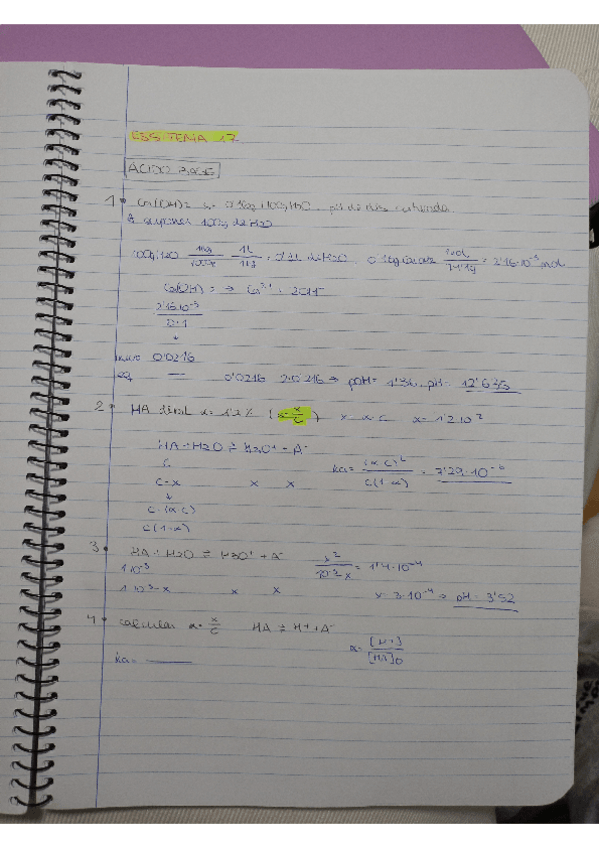 TEMA 17
ACIDO BASE
1 Ca(OH)2 0'16g / 100g H2O pH
suponer 100g de H2O
100g H2O 1kg/1000g · 1L/1kg = 0'1L de H2O 0'16g 1mol/74'1g = 2'16·10⁻³ mol
Ca(OH)2 → Ca²⁺ + 2OH⁻
2'16·10⁻³
0'1
↓
inicio 0'0216
eq — 0'0216 2·0'0216 → pOH = 1'36, pH = 12'635
2 HA α = 1'2% (α = x/c) x = α·c x = 1'2·10⁻²
HA + H2O ⇌ H3O⁺ + A⁻
c
c-x x x ka = (αc)²/c(1-α) = 7'29·10⁻⁶
↓
c-(αc)
c(1-α)
3 HA + H2O ⇌ H3O⁺ + A⁻ x²/10⁻³-x = 1'4·10⁻⁴
1·10⁻³
1·10⁻³-x x x x = 3·10⁻⁴ → pH = 3'52
4 calcular α = x/c HA ⇌ H⁺ + A⁻
α = [H⁺]/[HA]0
ka =